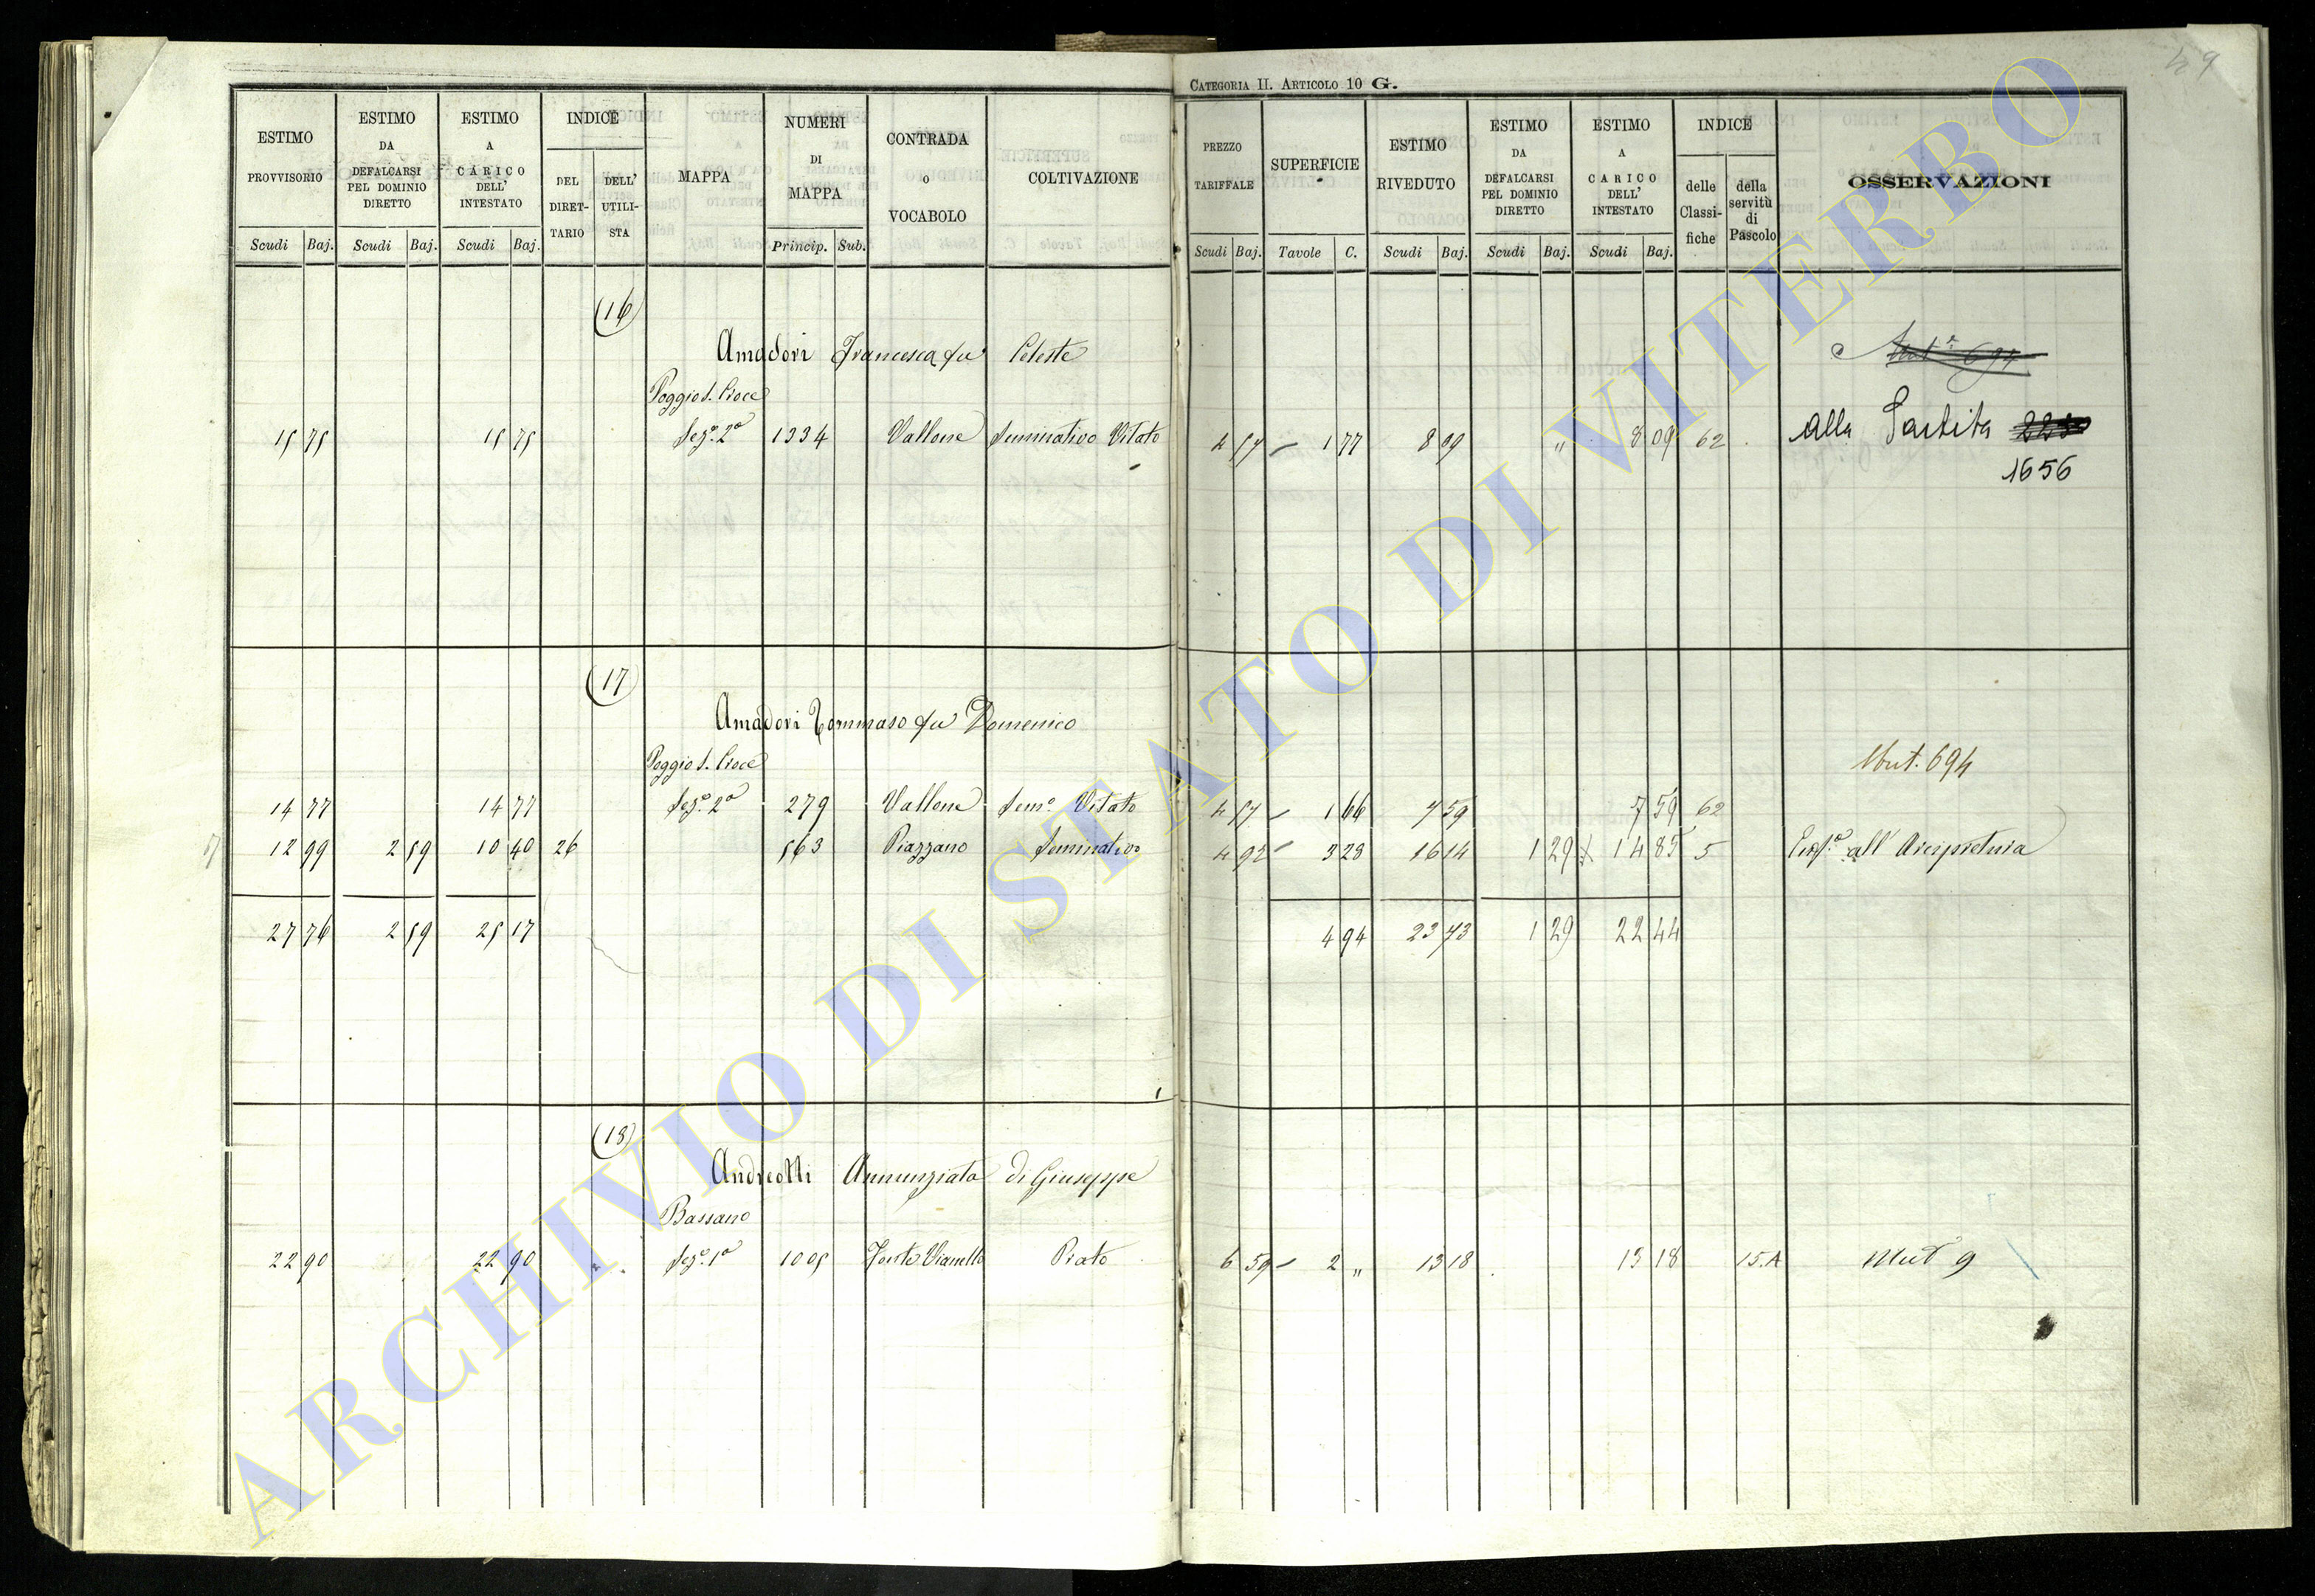 49
CATEGORIA II. ARTICOLO 10 G.
ESTIMO PROVVISORIO
ESTIMO DA DEFALCARSI PEL DOMINIO DIRETTO
ESTIMO A CARICO DELL' INTESTATO
INDICE
DEL DIRET-TARIO
DELL' UTILI-STA
MAPPA
NUMERI DI MAPPA
CONTRADA o VOCABOLO
COLTIVAZIONE
PREZZO TARIFFALE
SUPERFICIE
ESTIMO RIVEDUTO
ESTIMO DA DEFALCARSI PEL DOMINIO DIRETTO
ESTIMO A CARICO DELL' INTESTATO
INDICE
delle Classi-fiche
della servitù di Pascolo
OSSERVAZIONI
Scudi Baj. Scudi Baj. Scudi Baj. Princip. Sub. Scudi Baj. Tavole C. Scudi Baj. Scudi Baj. Scudi Baj.
(16)
Amadori Francesca fu Celeste
Mut. 694
Poggio S. Croce
15 75 15 75 Sez.e 2a 1334 Vallone Seminativo Vitato 4 57 1 77 8 09 " 8 09 62 Alla Partita
1656
(17)
Amadori Tommaso fu Domenico
Poggio S. Croce
Mut. 694
14 77 14 77 Sez.e 2a 279 Vallone Sem.o Vitato 4 57 1 66 7 59 7 59 62
12 99 2 59 10 40 26 563 Piazzano Seminativo 4 92 3 28 16 14 1 29 14 85 5 all' Arcipretura
27 76 2 59 25 17 4 94 23 73 1 29 22 44
(18)
Andreotti Annunziata di Giuseppe
Bassano
22 90 22 90 Sez.e 1a 1005 Fonte Vianello Prato 6 59 2 " 13 18 13 18 15.A Mut 9
ARCHIVIO DI STATO DI VITERBO